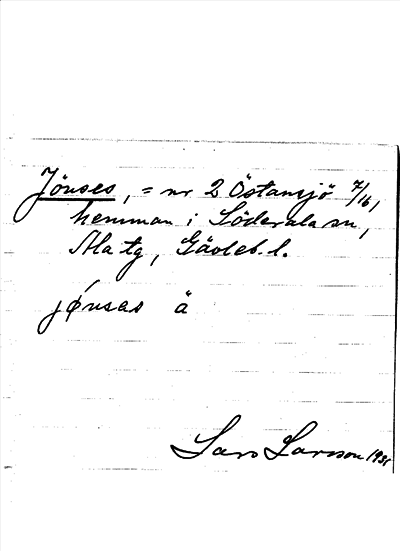 Jönses, = nr 2 Östansjö 7/16,
hemman i Söderala sn,
Ala tg, Gävleb. l.
jǿnsas å
Lars Larsson 1931